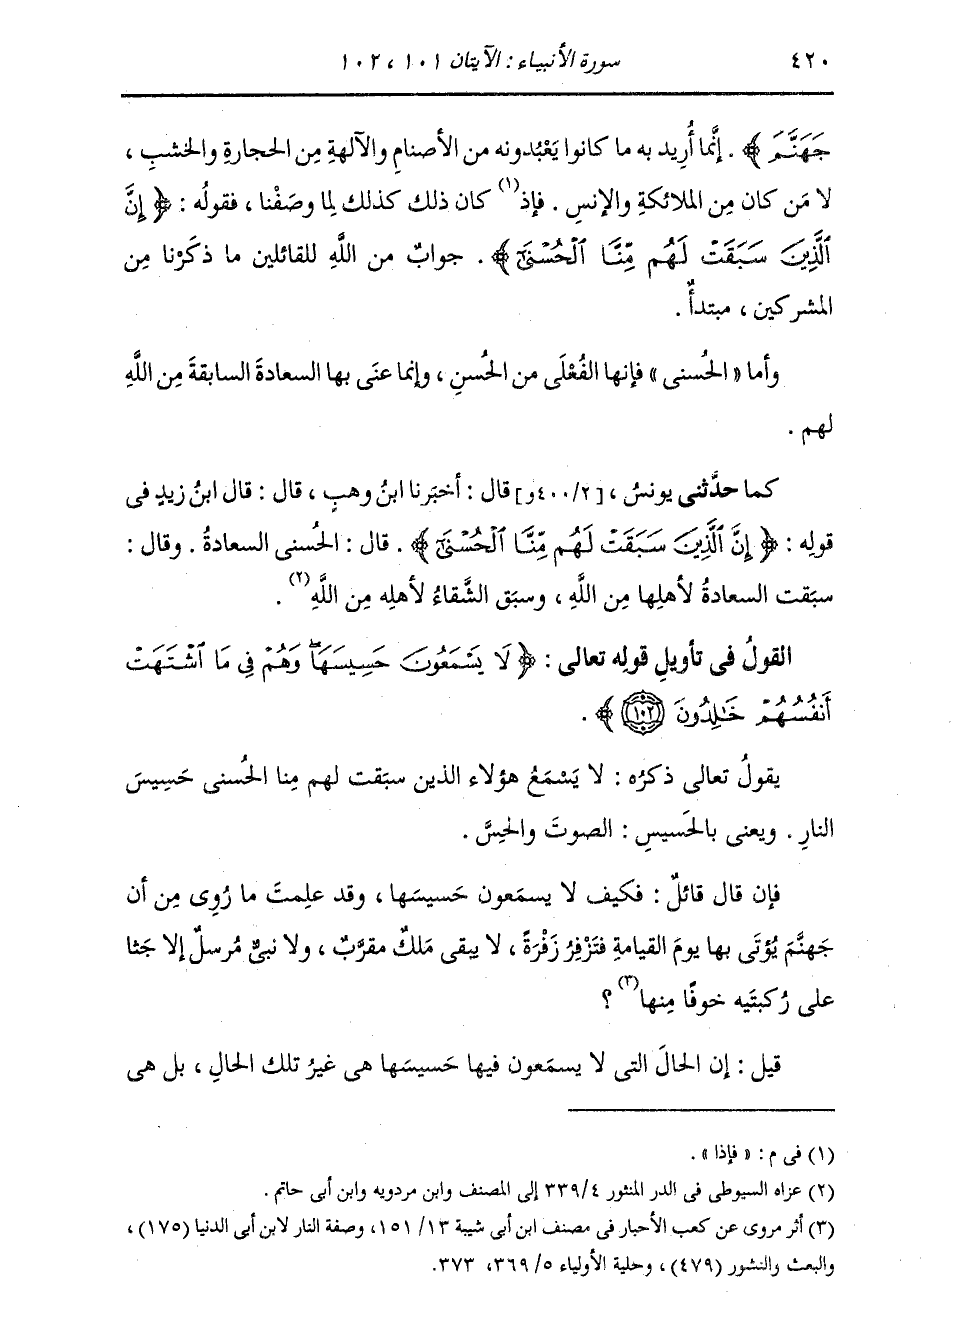 ٤٢٠ سورة الأنبياء : الآيتان ١٠١ ، ١٠٢
جَهَنَّمَ ﴾ . إنَّما أُريد به ما كانوا يَعْبُدونه من الأصنامِ والآلهةِ مِن الحجارةِ والخشبِ ،
لا مَن كان مِن الملائكةِ والإنسِ . فإذ(١) كان ذلك كذلك لِما وصَفْنا ، فقولُه : ﴿ إِنَّ
ٱلَّذِينَ سَبَقَتْ لَهُم مِّنَّا ٱلْحُسْنَىٰٓ ﴾ . جوابٌ من اللَّهِ للقائلين ما ذكَرْنا مِن
المشركين ، مبتدأٌ .
وأما « الحُسنى » فإنها الفُعْلَى من الحُسنِ ، وإنما عنَى بها السعادةَ السابقةَ مِن اللَّهِ
لهم .
كما حدَّثنى يونسُ ، [٤٠٠/٢و] قال : أخبَرنا ابنُ وهبٍ ، قال : قال ابنُ زيدٍ فى
قولِه : ﴿ إِنَّ ٱلَّذِينَ سَبَقَتْ لَهُم مِّنَّا ٱلْحُسْنَىٰٓ ﴾ . قال : الحُسنى السعادةُ . وقال :
سبَقت السعادةُ لأهلِها مِن اللَّهِ ، وسبَق الشَّقاءُ لأهلِه مِن اللَّهِ(٢) .
القولُ فى تأويلِ قولِه تعالى : ﴿ لَا يَسْمَعُونَ حَسِيسَهَا ۖ وَهُمْ فِى مَا ٱشْتَهَتْ
أَنفُسُهُمْ خَٰلِدُونَ ١٠٢ ﴾ .
يقولُ تعالى ذكرُه : لا يَسْمَعُ هؤلاء الذين سبَقت لهم مِنا الحُسنى حَسِيسَ
النارِ . ويعنى بالحَسيسِ : الصوتَ والحِسَّ .
فإن قال قائلٌ : فكيف لا يسمَعون حَسيسَها ، وقد علِمتَ ما رُوِى مِن أن
جَهنَّمَ يُؤتَى بها يومَ القيامةِ فتَزْفِرُ زَفْرَةً ، لا يبقى مَلكٌ مقرَّبٌ ، ولا نبىٌّ مُرسلٌ إلا جَثا
على رُكبتَيه خوفًا مِنها(٣) ؟
قيل : إن الحالَ التى لا يسمَعون فيها حَسيسَها هى غيرُ تلك الحالِ ، بل هى
(١) فى م : « فإذا » .
(٢) عزاه السيوطى فى الدر المنثور ٣٣٩/٤ إلى المصنف وابن مردويه وابن أبى حاتم .
(٣) أثر مروى عن كعب الأحبار فى مصنف ابن أبى شيبة ١٣/ ١٥١، وصفة النار لابن أبى الدنيا (١٧٥) ،
والبعث والنشور (٤٧٩) ، وحلية الأولياء ٥/ ٣٦٩، ٣٧٣.